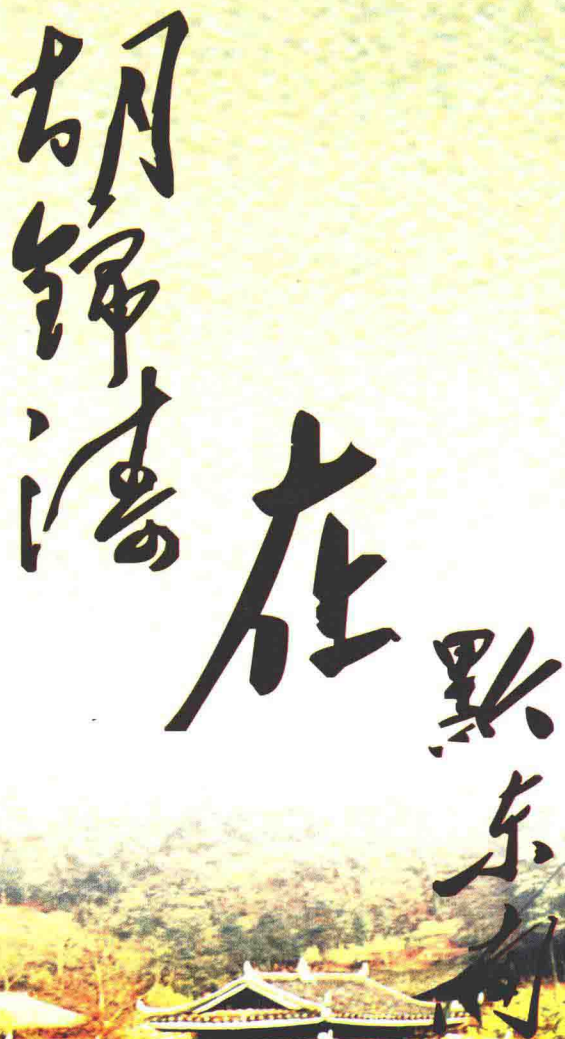 胡锦涛
在
黔东南